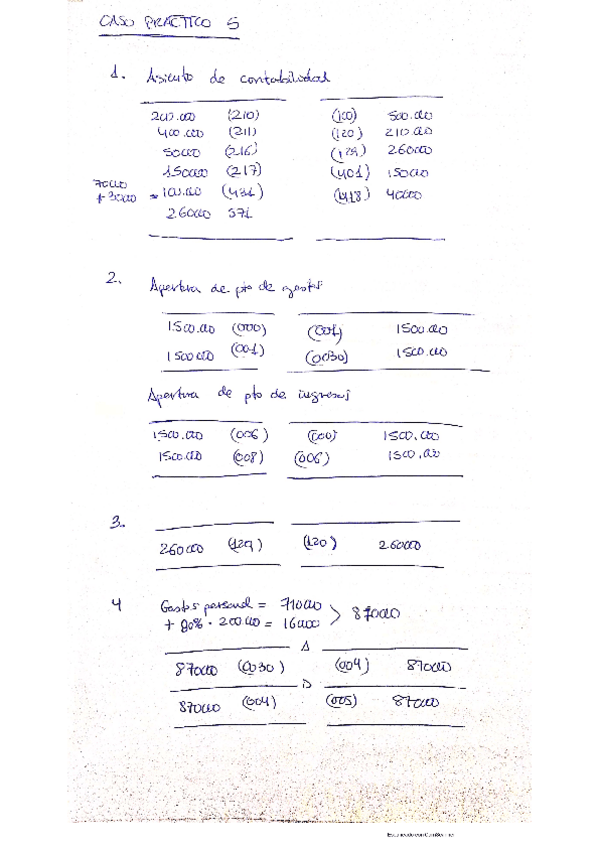 CASO PRÁCTICO 5
1. Asiento de contabilidad
200.000 (210) (100) 500.000
400.000 (211) (120) 210.000
50000 (216) (129) 260000
150000 (217) (401) 150000
70000 + 30000 = 100.000 (431) (418) 40000
260000 571
2. Apertura de pto de gastos
1500.000 (000) (001) 1500.000
1500000 (001) (0030) 1500.000
Apertura de pto de ingresos
1500.000 (006) (000) 1500.000
1500.000 (008) (006) 1500.000
3.
260000 (129) (120) 260000
4 Gastos personal = 710000
+ 80% · 200000 = 160000 > 870000
A
870000 (0030) (004) 870000
D
870000 (004) (005) 870000
Escaneado con CamScanner